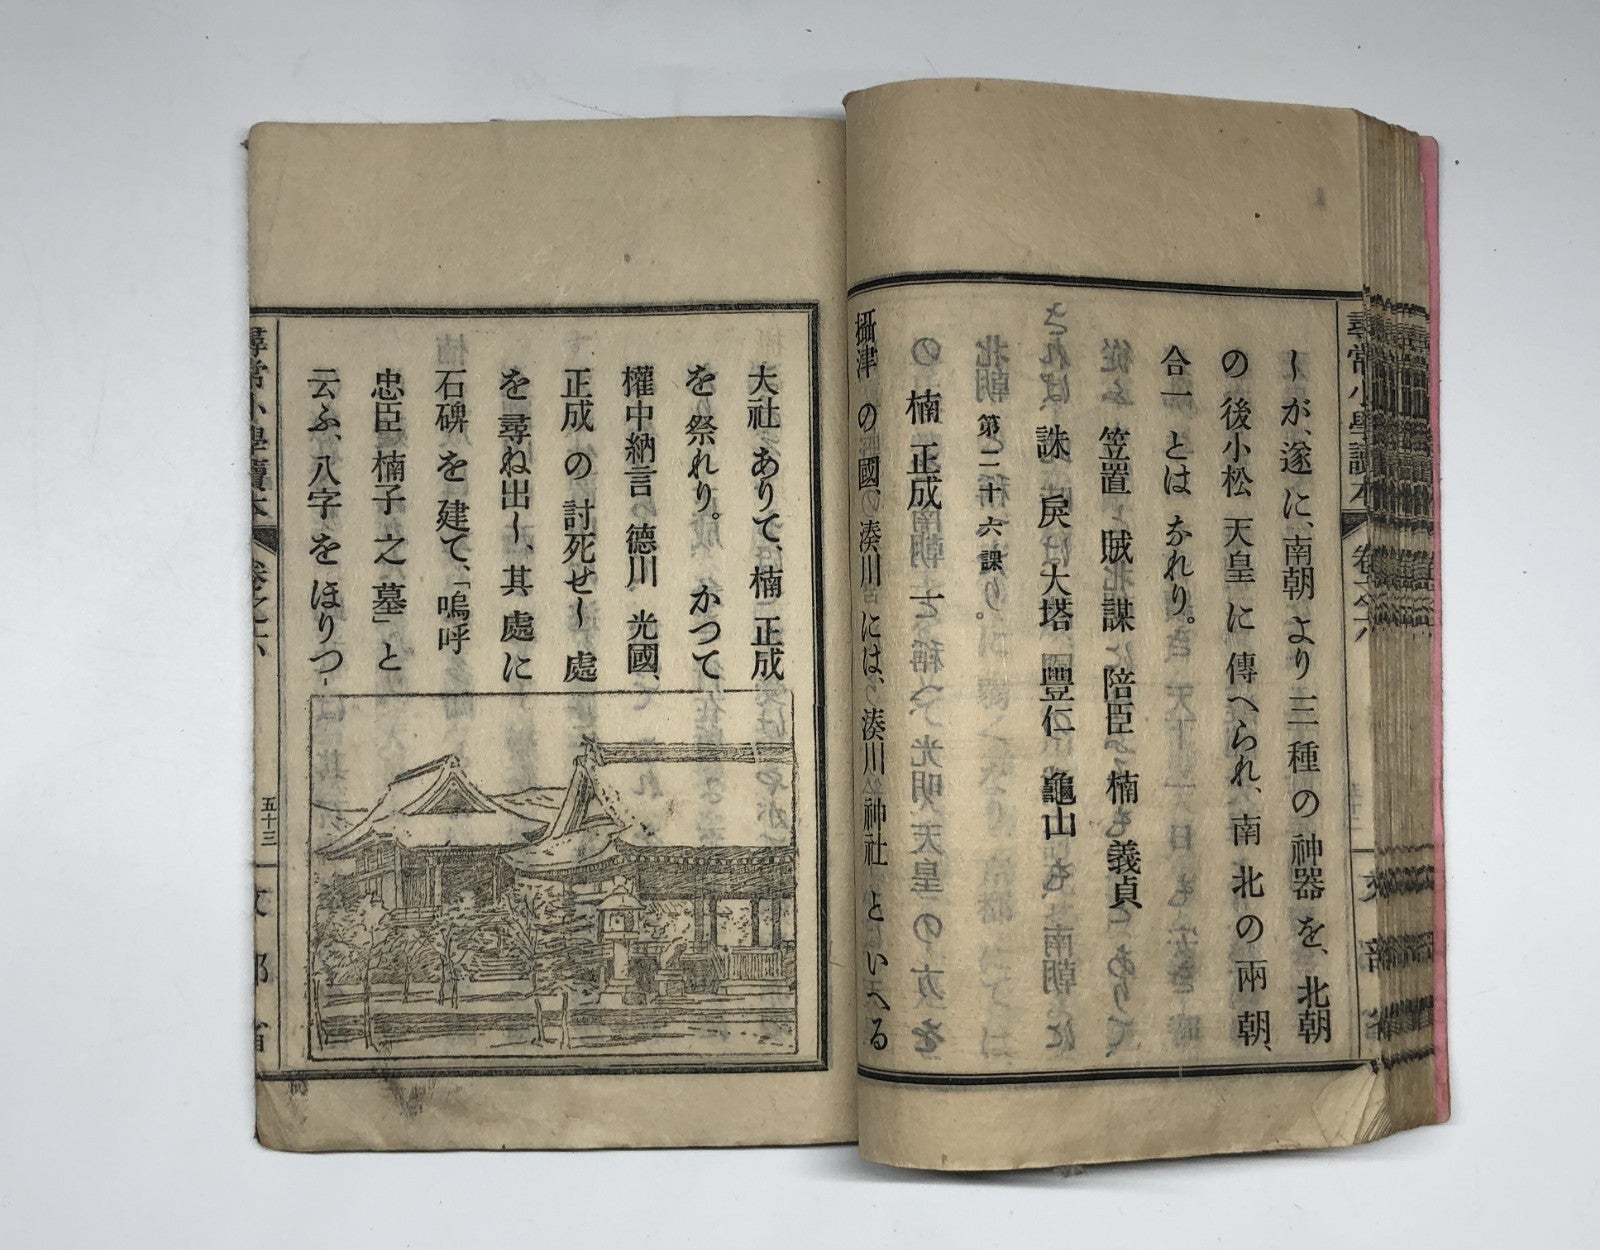 尋常小學讀本
文部省
しが、遂に、南朝より三種の神器を、北朝
の後小松天皇に傳へられ、南北の兩朝、
合一とはなれり。
笠置 賊 謀 陪臣 楠義貞
誅 戻 大塔 豐仁 龜山
第二十六課
楠正成
攝津の國、湊川には、湊川神社といへる
大社ありて、楠正成
を祭れり。かつて
權中納言德川光國、
正成の討死せし處
を尋ね出し、其處に
石碑を建て、「嗚呼
忠臣楠子之墓」と
云ふ、八字をほりつ
尋常小學讀本
卷之六
五十三
文部省